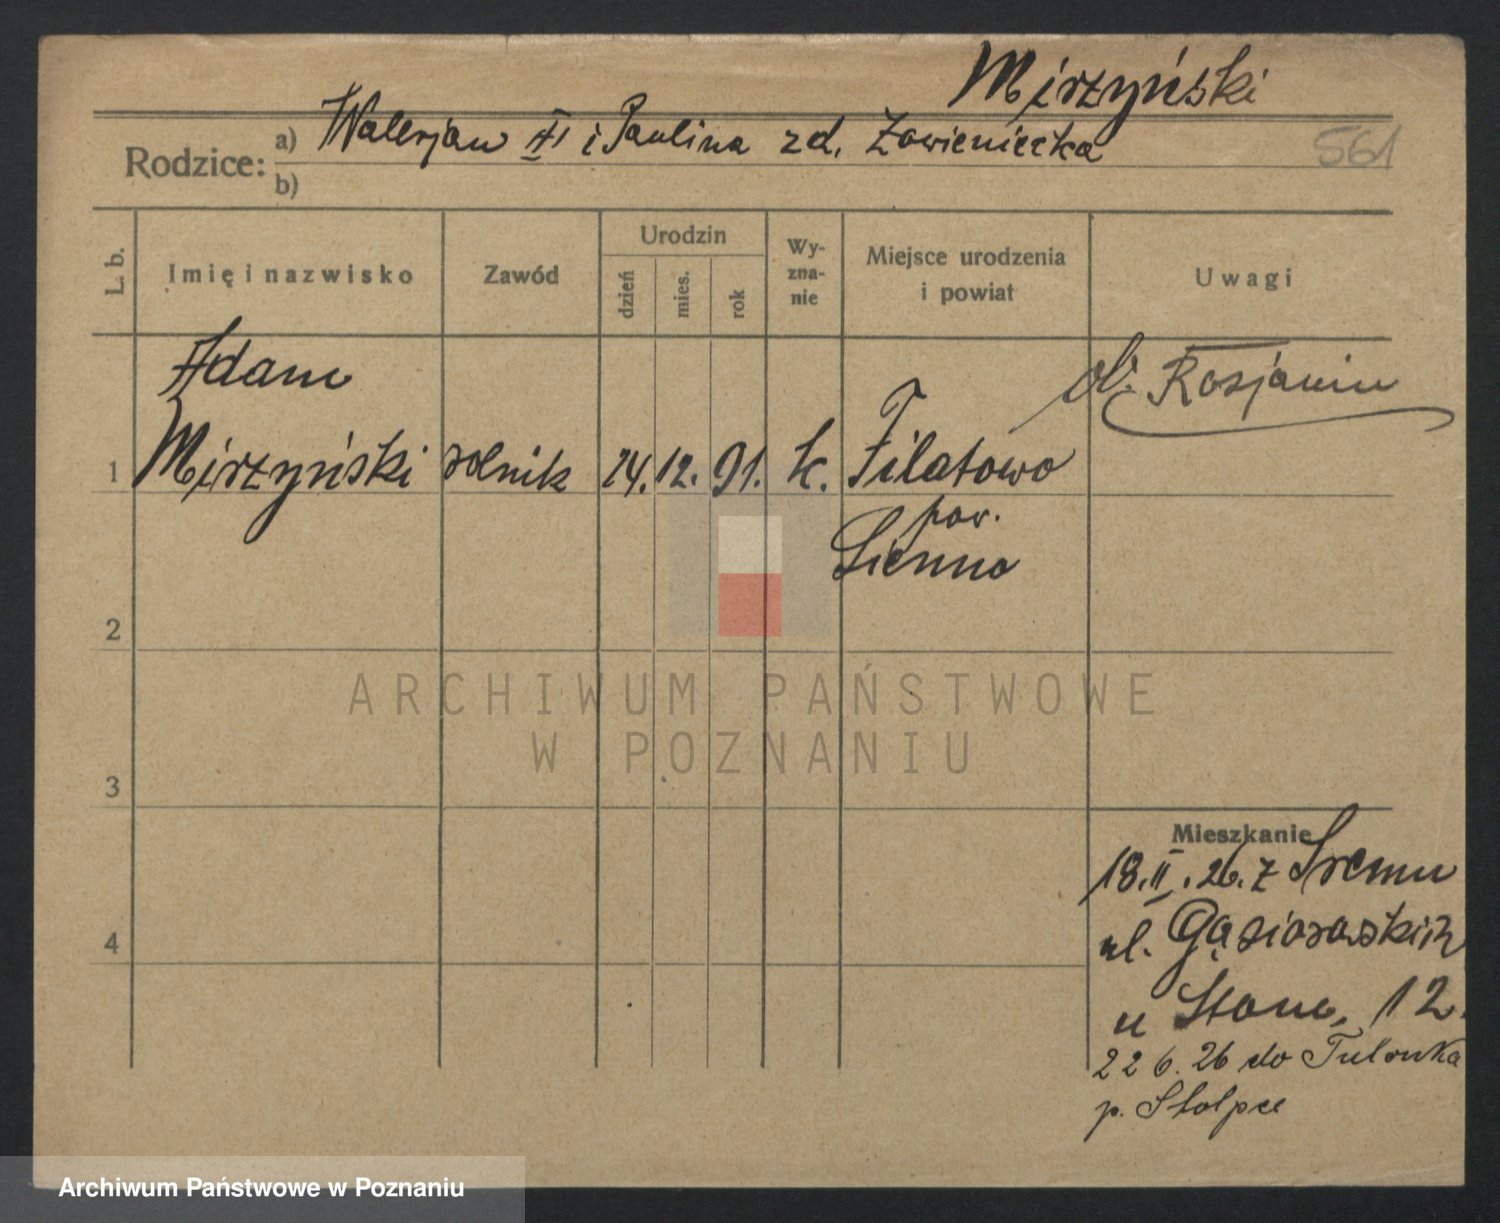 Mirzyński
Rodzice: a) Walerjan i Paulina zd. Zawieniecka
561
b)
L. b.
Imię i nazwisko
Zawód
Urodzin
dzień
mies.
rok
Wy-
zna-
nie
Miejsce urodzenia
i powiat
Uwagi
Adam
ob. Rosjanin
1 Mirzyński rolnik 24. 12. 91. k. Filatowo
pow.
Sienno
2
3
4
Mieszkanie
18.II.26. z Śremu
ul. Gąsiorowskich
u 12.
22 6. 26 do
p. Stolpce
ARCHIWUM PAŃSTWOWE
W POZNANIU
Archiwum Państwowe w Poznaniu